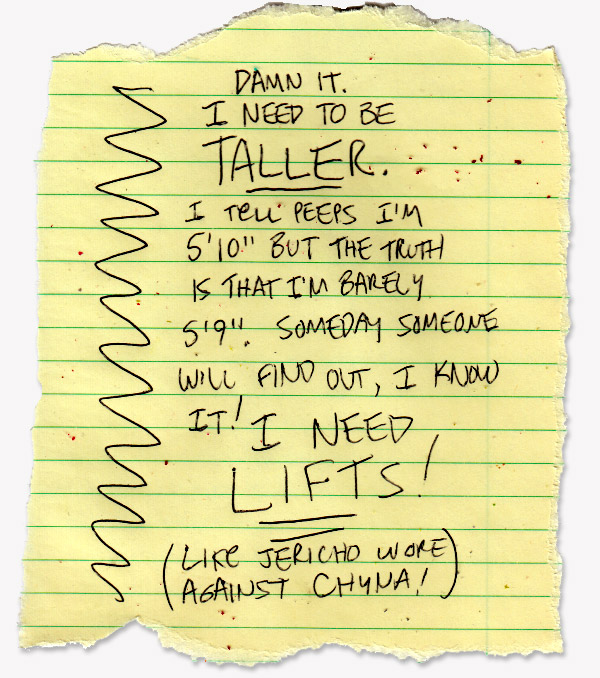 DAMN IT.
I NEED TO BE
TALLER.
I TELL PEEPS I'M
5'10" BUT THE TRUTH
IS THAT I'M BARELY
5'9". SOMEDAY SOMEONE
WILL FIND OUT, I KNOW
IT! I NEED
LIFTS!
(LIKE JERICHO WORE
AGAINST CHYNA!)